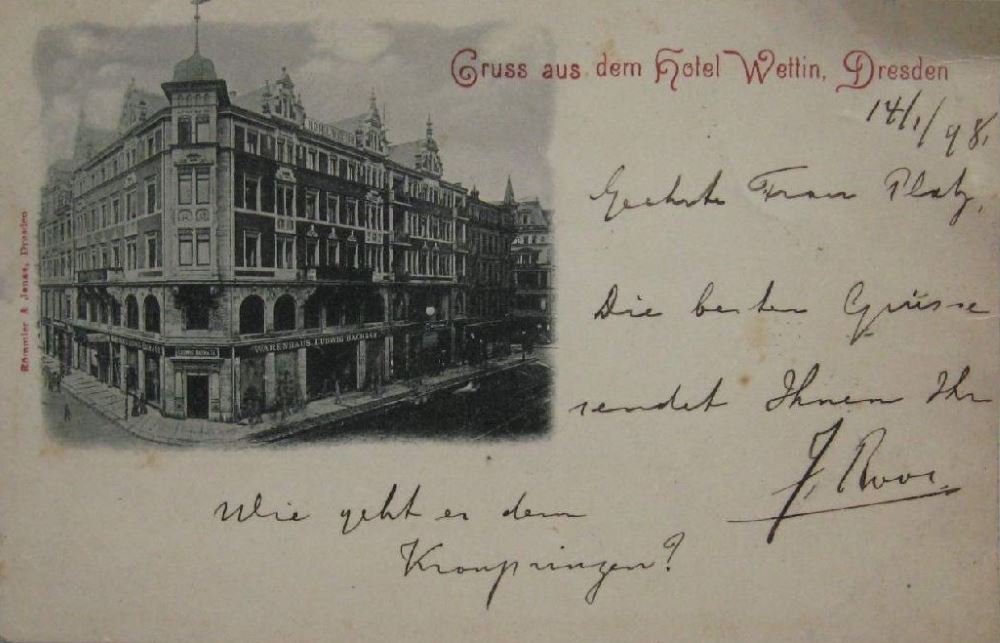 Gruss aus dem Hotel Wettin, Dresden
14/1/98.
Geehrte Frau Platz,
Die besten Grüsse
sendet Ihnen Ihr
J. Roos.
Wie geht es dem
Kronprinzen?
WARENHAUS LUDWIG BACH & Co
LUDWIG BACH & Co
Römmler & Jonas, Dresden